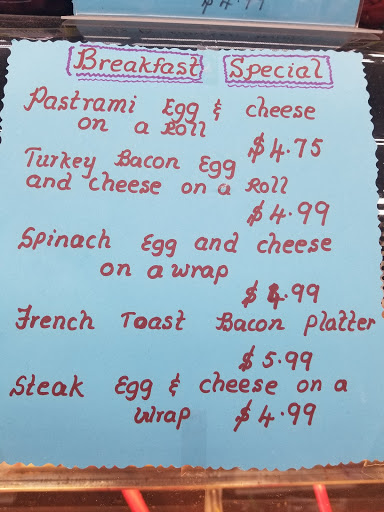 Breakfast Special
Pastrami Egg & cheese
on a Roll
$4.75
Turkey Bacon Egg
and cheese on a Roll
$4.99
Spinach Egg and cheese
on a wrap
French Toast Bacon Platter
$5.99
Steak Egg & cheese on a
wrap $4.99